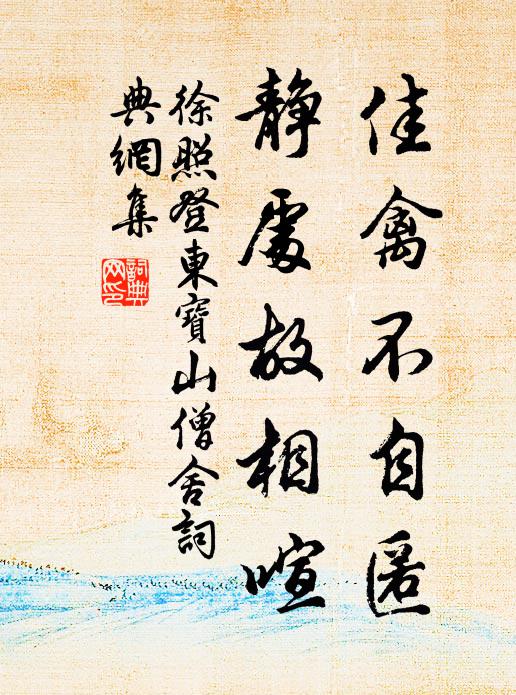 佳禽不自匿
静處故相喧
徐照登東寶山僧舍詞
典網集
詞典
网印